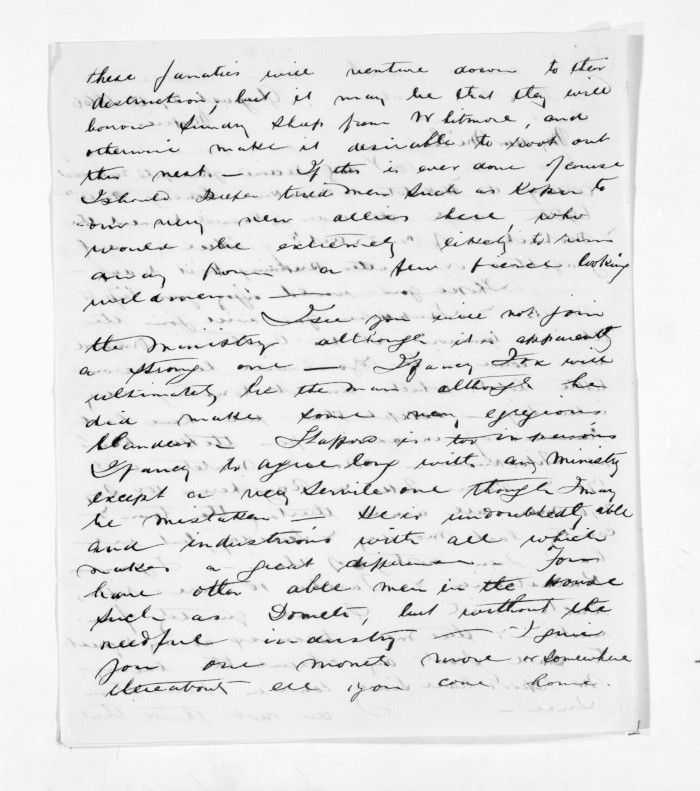 these fanatics will venture down to their
destruction, but it may be that they will
borrow Sunday Sheep from Whitmore, and
otherwise make it desirable to root out
this nest — If this is ever done of course
I should prefer tried men such as Kopu to
our very new allies here, who
would be extremely likely to run
away from a few fierce looking
wildmen —
I see you will not join
the Ministry although it is apparently
a strong one — I fancy Fox will
ultimately be the man although he
did make some very egregious
blunders — Stafford is too
I fancy to agree long with any Ministry
except a very servile one though I may
be mistaken — He is undoubtedly able
and industrious with all which
makes a great difference You
have other able men in the House
such as Domett, but without the
needful industry — I give
you one month more or somewhere
thereabouts ere you come home.